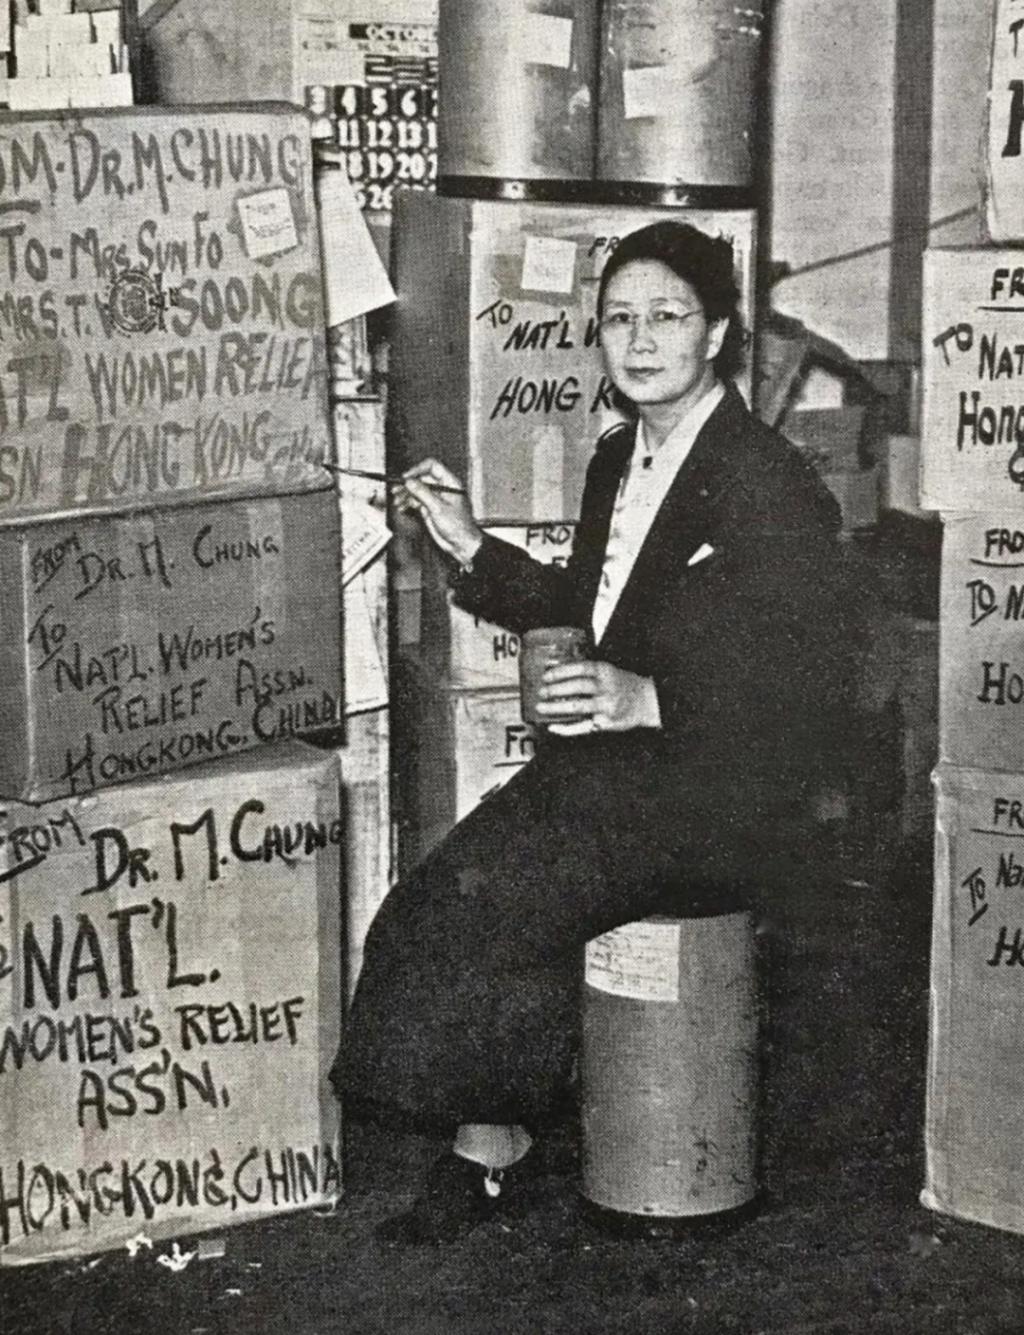 OCTOBER
3 4 5 6
11 12 13
18 19 20
26
DR. M. CHUNG
TO - MRS. SUN FO
MRS. T. V. SOONG
NAT'L WOMEN RELIEF
ASSN HONG KONG
FROM
DR. M. CHUNG
TO
NAT'L. WOMEN'S
RELIEF ASSN.
HONGKONG. CHINA
FROM DR. M. CHUNG
NAT'L.
WOMEN'S RELIEF
ASS'N.
HONGKONG, CHINA
TO
NAT'L W
HONG K
FRO
HO
Fr
FR
TO NAT
Hong
FRO
TO N
Ho
FR
TO Na
Ho